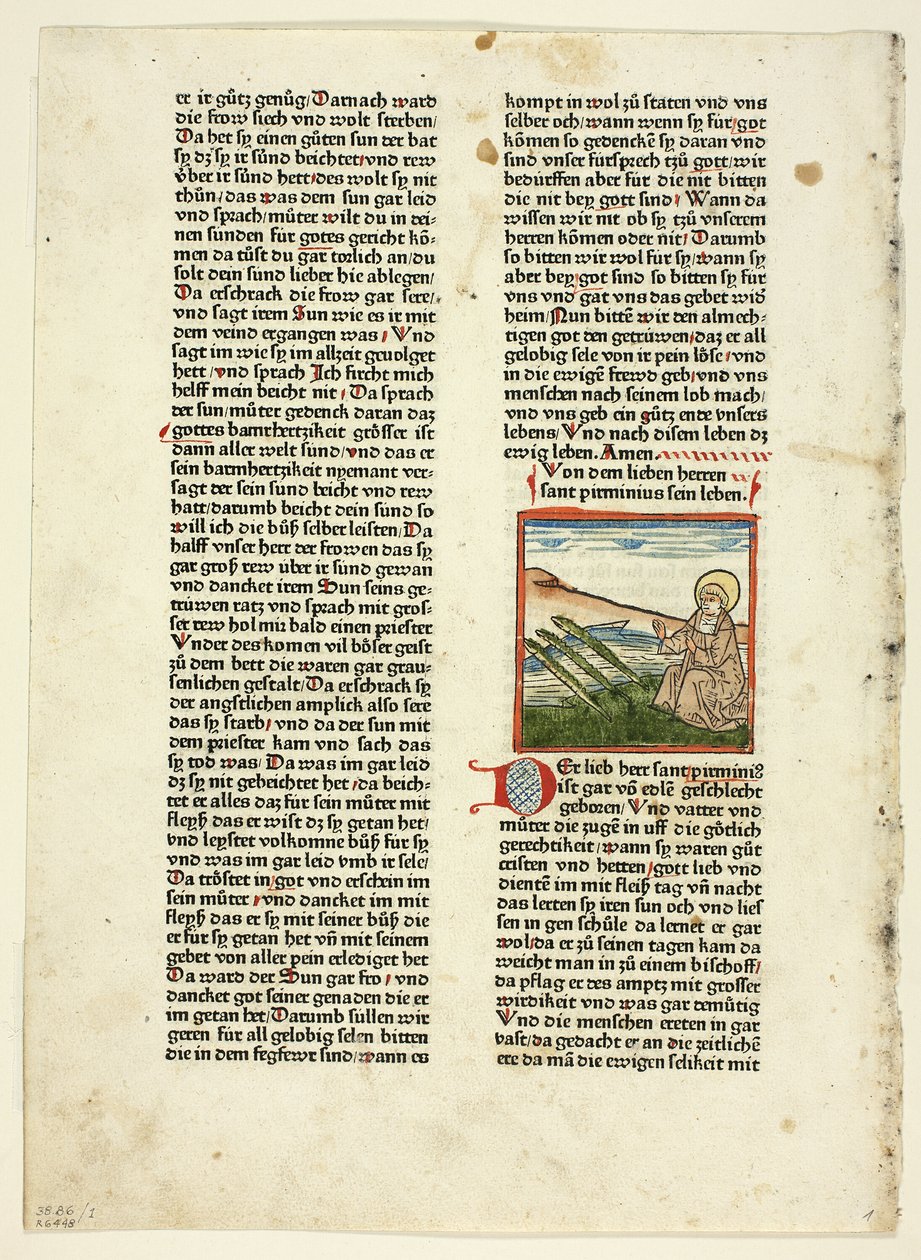 er ir gůtz genůg/Darnach ward
die frow siech vnd wolt sterben/
Da het sy einen gůten sun der bat
sy dz sy ir sünd beichtet/vnd rew
v̈ber ir sünd hett/des wolt sy nit
thůn/das was dem sun gar leid
vnd sprach/můter wilt du in dei⸗
nen sünden für gotes gericht kö⸗
men da tůst du gar torlich an/du
solt dein sünd lieber hie ablegen/
Da erschrack die frow gar sere/
vnd sagt irem Sun wie es ir mit
dem veind ergangen was/Vnd
sagt im wie sy im allzeit geuolget
hett/vnd sprach Ich fircht mich
helff mein beicht nit/Da sprach
der sun/můter gedenck daran daz
gottes barmhertzikeit grösser ist
dann aller welt sünd/vnd das er
sein barmhertzikeit nyemant ver⸗
sagt der sein sund beicht vnd rew
hatt/darumb beicht dein sünd so
will ich die bůß selber leisten/Da
halff vnser herr der frowen das sy
gar groß rew über ir sünd gewan
vnd dancket irem Sun seins ge⸗
trüwen ratz vnd sprach mit gros⸗
ser rew hol mir bald einen priester
Vnder des komen vil böser geist
zů dem bett die waren gar grau⸗
senlichen gestalt/Da erschrack sy
der angstlichen amplick also sere
das sy starb/vnd da der sun mit
dem priester kam vnd sach das
sy tod was/Da was im gar leid
dz sy nit gebeichtet het/da beich⸗
tet er alles daz für sein můter mit
fleyß das er wist dz sy getan het/
vnd leystet volkomne bůß für sy
vnd was im gar leid vmb ir sele/
Da tröstet in/got vnd erschein im
sein můter/vnd dancket im mit
fleyß das er sy mit seiner bůß die
er für sy getan het vn̄ mit seinem
gebet von aller pein erlediget het
Da ward der Sun gar fro/vnd
dancket got seiner genaden die er
im getan het/Darumb süllen wir
geren für all gelobig selen bitten
die in dem fegfewr sind/wann es
kompt in wol zů staten vnd vns
selber och/wann wenn sy für/got
kömen so gedenckē sy daran vnd
sind vnser fürsprech tzů gott/wir
bedürffen aber für die nit bitten
die nit bey gott sind/Wann da
wissen wir nit ob sy tzů vnserem
herren kömen oder nit/Darumb
so bitten wir wol für sy/wann sy
aber bey/got sind so bitten sy für
vns vnd gat vns das gebet wid̄
heim/Nun bittē wir den almech⸗
tigen got den getrüwen/daz er all
gelobig sele von ir pein löse/vnd
in die ewigē frewd geb/vnd vns
menschen nach seinem lob mach/
vnd vns geb ein gůtz ende vnsers
lebens/Vnd nach disem leben dz
ewig leben. Amen.
Von dem lieben herren
sant pirminius sein leben.
DEr lieb herr sant/pirminiꝰ
ist gar vō edlē geschlecht
geboren/Vnd vatter vnd
můter die zugē in uff die götlich
gerechtikeit/wann sy waren gůt
cristen vnd hetten/gott lieb vnd
dientē im mit fleiß tag vn̄ nacht
das lerten sy iren sun och vnd lies
sen in gen schůle da lernet er gar
wol/da er zů seinen tagen kam da
weicht man in zů einem bischoff/
da pflag er des amptz mit grosser
wirdikeit vnd was gar demůtig
Vnd die menschen ereten in gar
vast/da gedacht er an die zeitlichē
ere da mā die ewigen selikeit mit
38.86/1
R6448
1